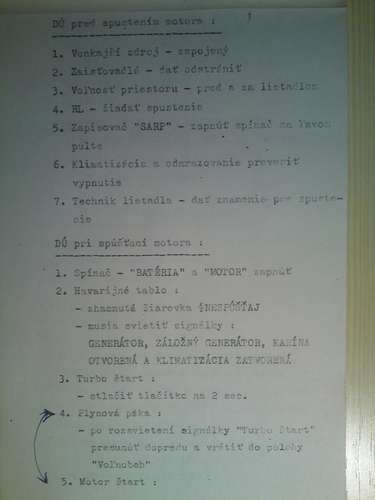 DÚ pred spustením motora :
1. Vonkajší zdroj - zapojený
2. Zaisťovadlá - dať odstrániť
3. Voľnosť priestoru - pred a za lietadlom
4. RL - žiadať spustenie
5. Zapisovač "SARP" - zapnúť spínač na ľavom
pulte
6. Klimatizácia a odmrazovanie preveriť
vypnutie
7. Technik lietadla - dať znamenie pre spuste-
nie
DÚ pri spúšťaní motora :
1. Spínač - "BATÉRIA" a "MOTOR" zapnúť
2. Havarijné tablo :
- zhasnutá žiarovka NESPÚŠŤAJ
- musia svietiť signálky :
GENERÁTOR, ZÁLOŽNÝ GENERÁTOR, KABÍNA
OTVORENÁ A KLIMATIZÁCIA ZATVORENÁ
3. Turbo štart :
- stlačiť tlačítko na 2 sec.
4. Plynová páka :
- po rozsvietení signálky "Turbo Štart"
presunúť dopredu a vrátiť do polohy
"Voľnobeh"
5. Motor Štart :